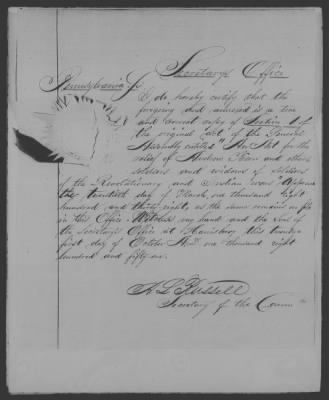 Secretary's Office
Pennsylvania, ss
I do hereby certify that the
foregoing and annexed is a true
and correct copy of Section 1 of
the original Act of the General
Assembly entitled "An Act for the
relief of Andrew and other
soldiers and widows of soldiers
of the Revolutionary and Indian wars" Approved
the twentieth day of March, one thousand eight
hundred and thirty eight, as the same remains on file
in this Office. Witness my hand and the seal of
the Secretary's Office at Harrisburg this twenty
first day of October A.D. one thousand eight
hundred and fifty-six.
A G Russell
Secretary of the Comm